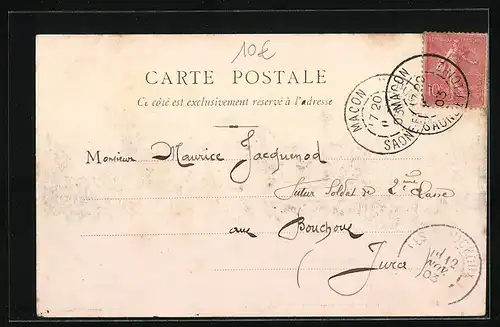 10€
CARTE POSTALE
Ce côté est exclusivement réservé à l'adresse
MACON
7 20
SAONE
MACON
03
SAONE
10
Monsieur Maurice Jacquenod
Futur Soldat de 2ème Classe
aux Bouchoux
Jura
12
03